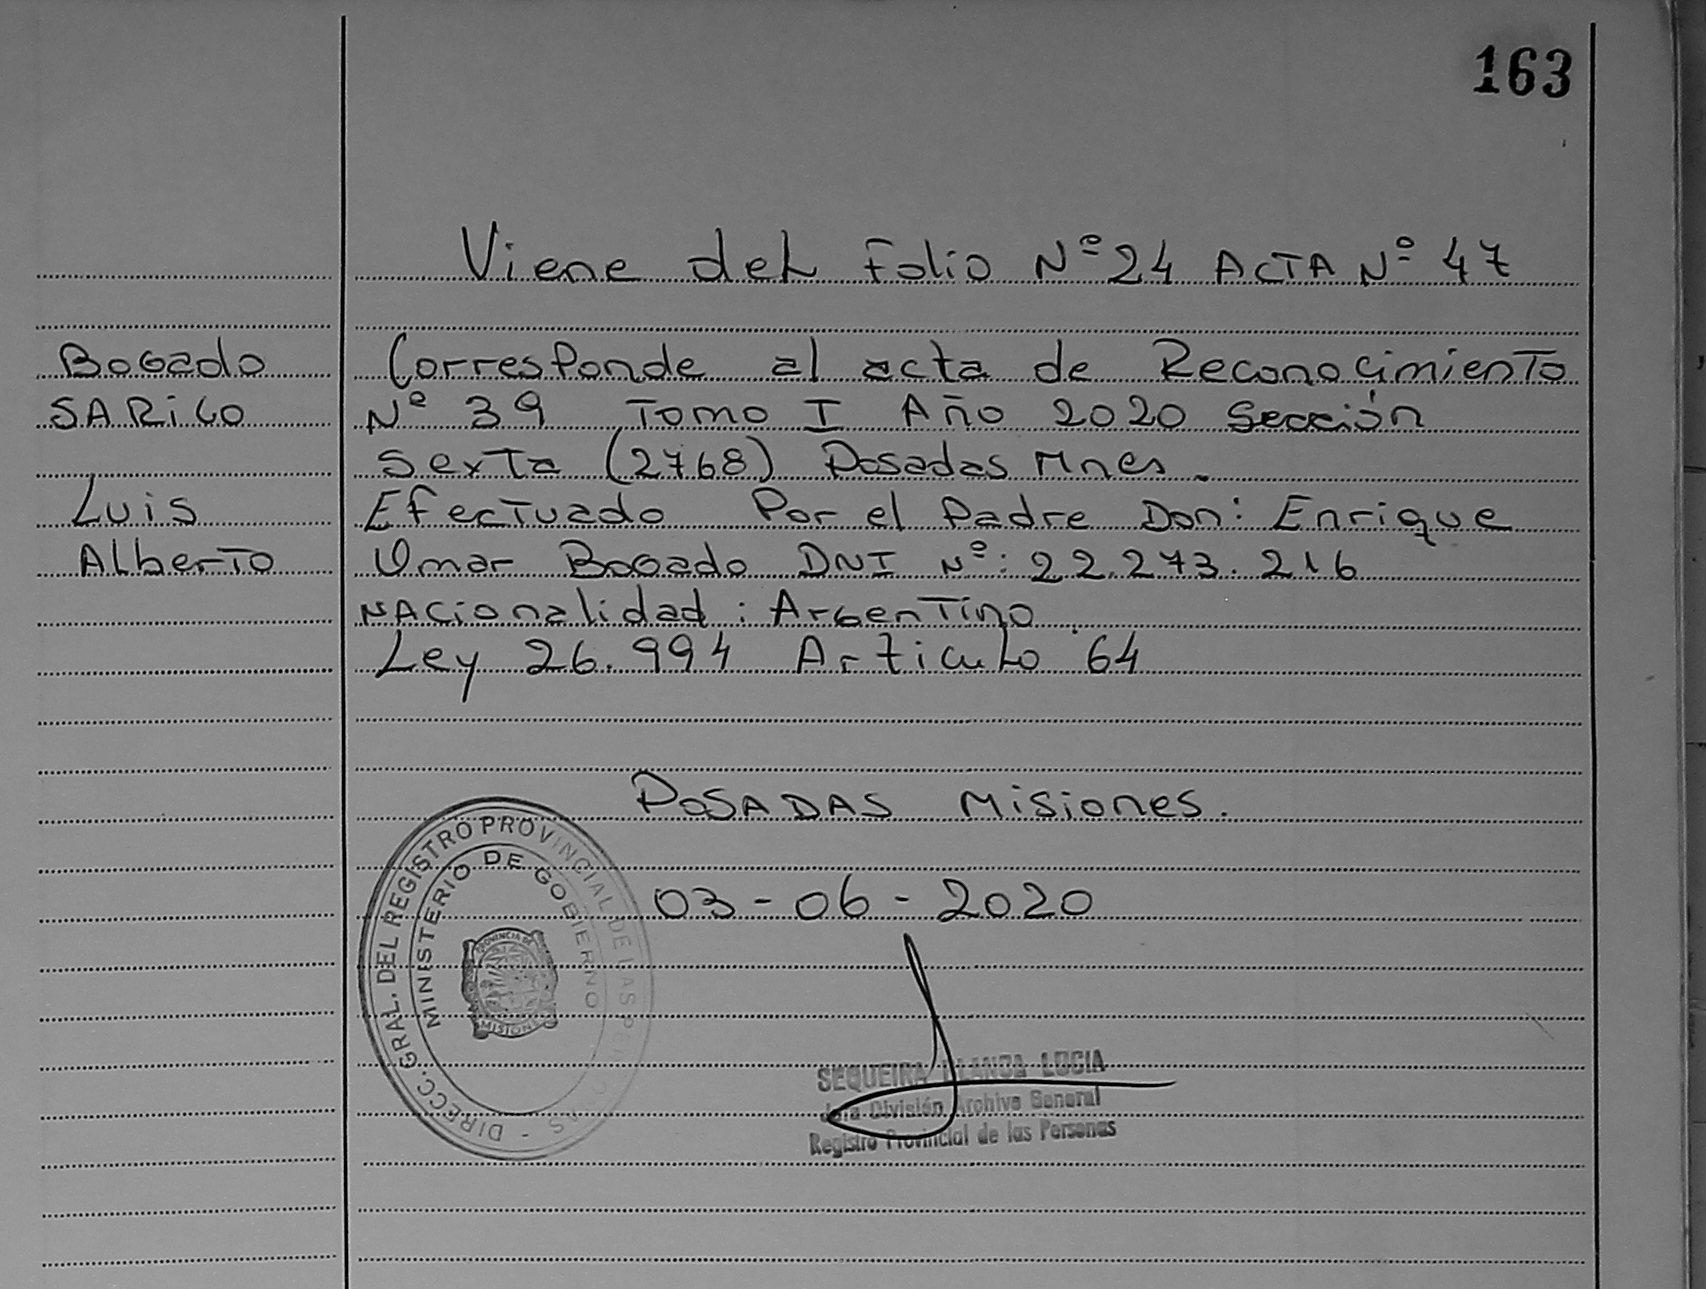 163
Viene del Folio Nº 24 ACTA Nº 47
Bogado
SARiGO
Luis
Alberto
Corresponde al acta de Reconocimiento
Nº 39 Tomo I Año 2020 Sección
Sexta (2768) Posadas Mnes.
Efectuado Por el Padre Don: Enrique
Omar Bogado DNI Nº: 22.273.216
NACionalidad: Argentino.
Ley 26.994 Articulo 64
POSADAS Misiones.
03-06-2020
DIRECC. GRAL. DEL REGISTRO PROVINCIAL DE LAS PERSONAS -
MINISTERIO DE GOBIERNO
PROVINCIA DE
MISIONES
SEQUEIRA BLANCA LUCIA
Jefa División Archivo General
Registro Provincial de las Personas